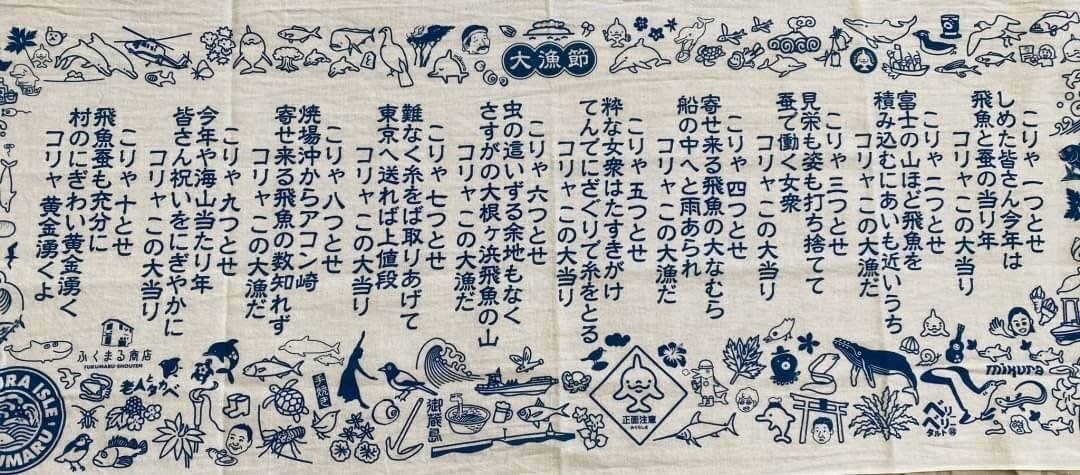 大漁節
こりゃ 一つとせ
しめた皆さん今年は
飛魚と蚕の当り年
コリャ この大当り
こりゃ 二つとせ
富士の山ほど飛魚を
積み込むにあいも近いうち
コリャ この大漁だ
こりゃ 三つとせ
見栄も姿も打ち捨てて
蚕で働く女衆
コリャ この大当り
こりゃ 四つとせ
寄せ来る飛魚の大なむら
船の中へと雨あられ
コリャ この大漁だ
こりゃ 五つとせ
粋な女衆はたすきがけ
てんでにざぐりで糸をとる
コリャ この大当り
こりゃ 六つとせ
虫の這いずる余地もなく
さすがの大根ヶ浜飛魚の山
コリャ この大漁だ
こりゃ 七つとせ
難なく糸をば取りあげて
東京へ送れば上値段
コリャ この大当り
こりゃ 八つとせ
焼場沖からアコン崎
寄せ来る飛魚の数知れず
コリャ この大漁だ
こりゃ 九つとせ
今年や海山当たり年
皆さん祝いをにぎやかに
コリャ この大当り
こりゃ 十とせ
飛魚蚕も充分に
村のにぎわい黄金湧く
コリャ 黄金湧くよ
ふくまる商店
FUKUMARU-SHOUTEN
手焼き
御蔵島
正面注意
mikura
ベリー
タルト